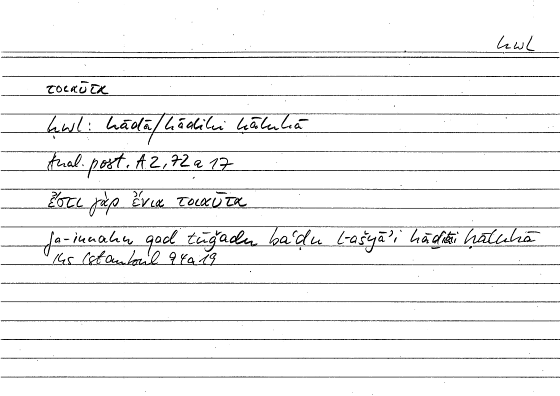 ḥwl
τοιαῦτα
ḥwl: hāḏā/hāḏihi ḥāluhā
Anal. post. A2, 72a17
ἔστι γὰρ ἔνια τοιαῦτα
fa-innahu qad tūǧadu baʿḍu l-ašyāʾi hāḏihi ḥāluhā
Ms Istanbul 94a19